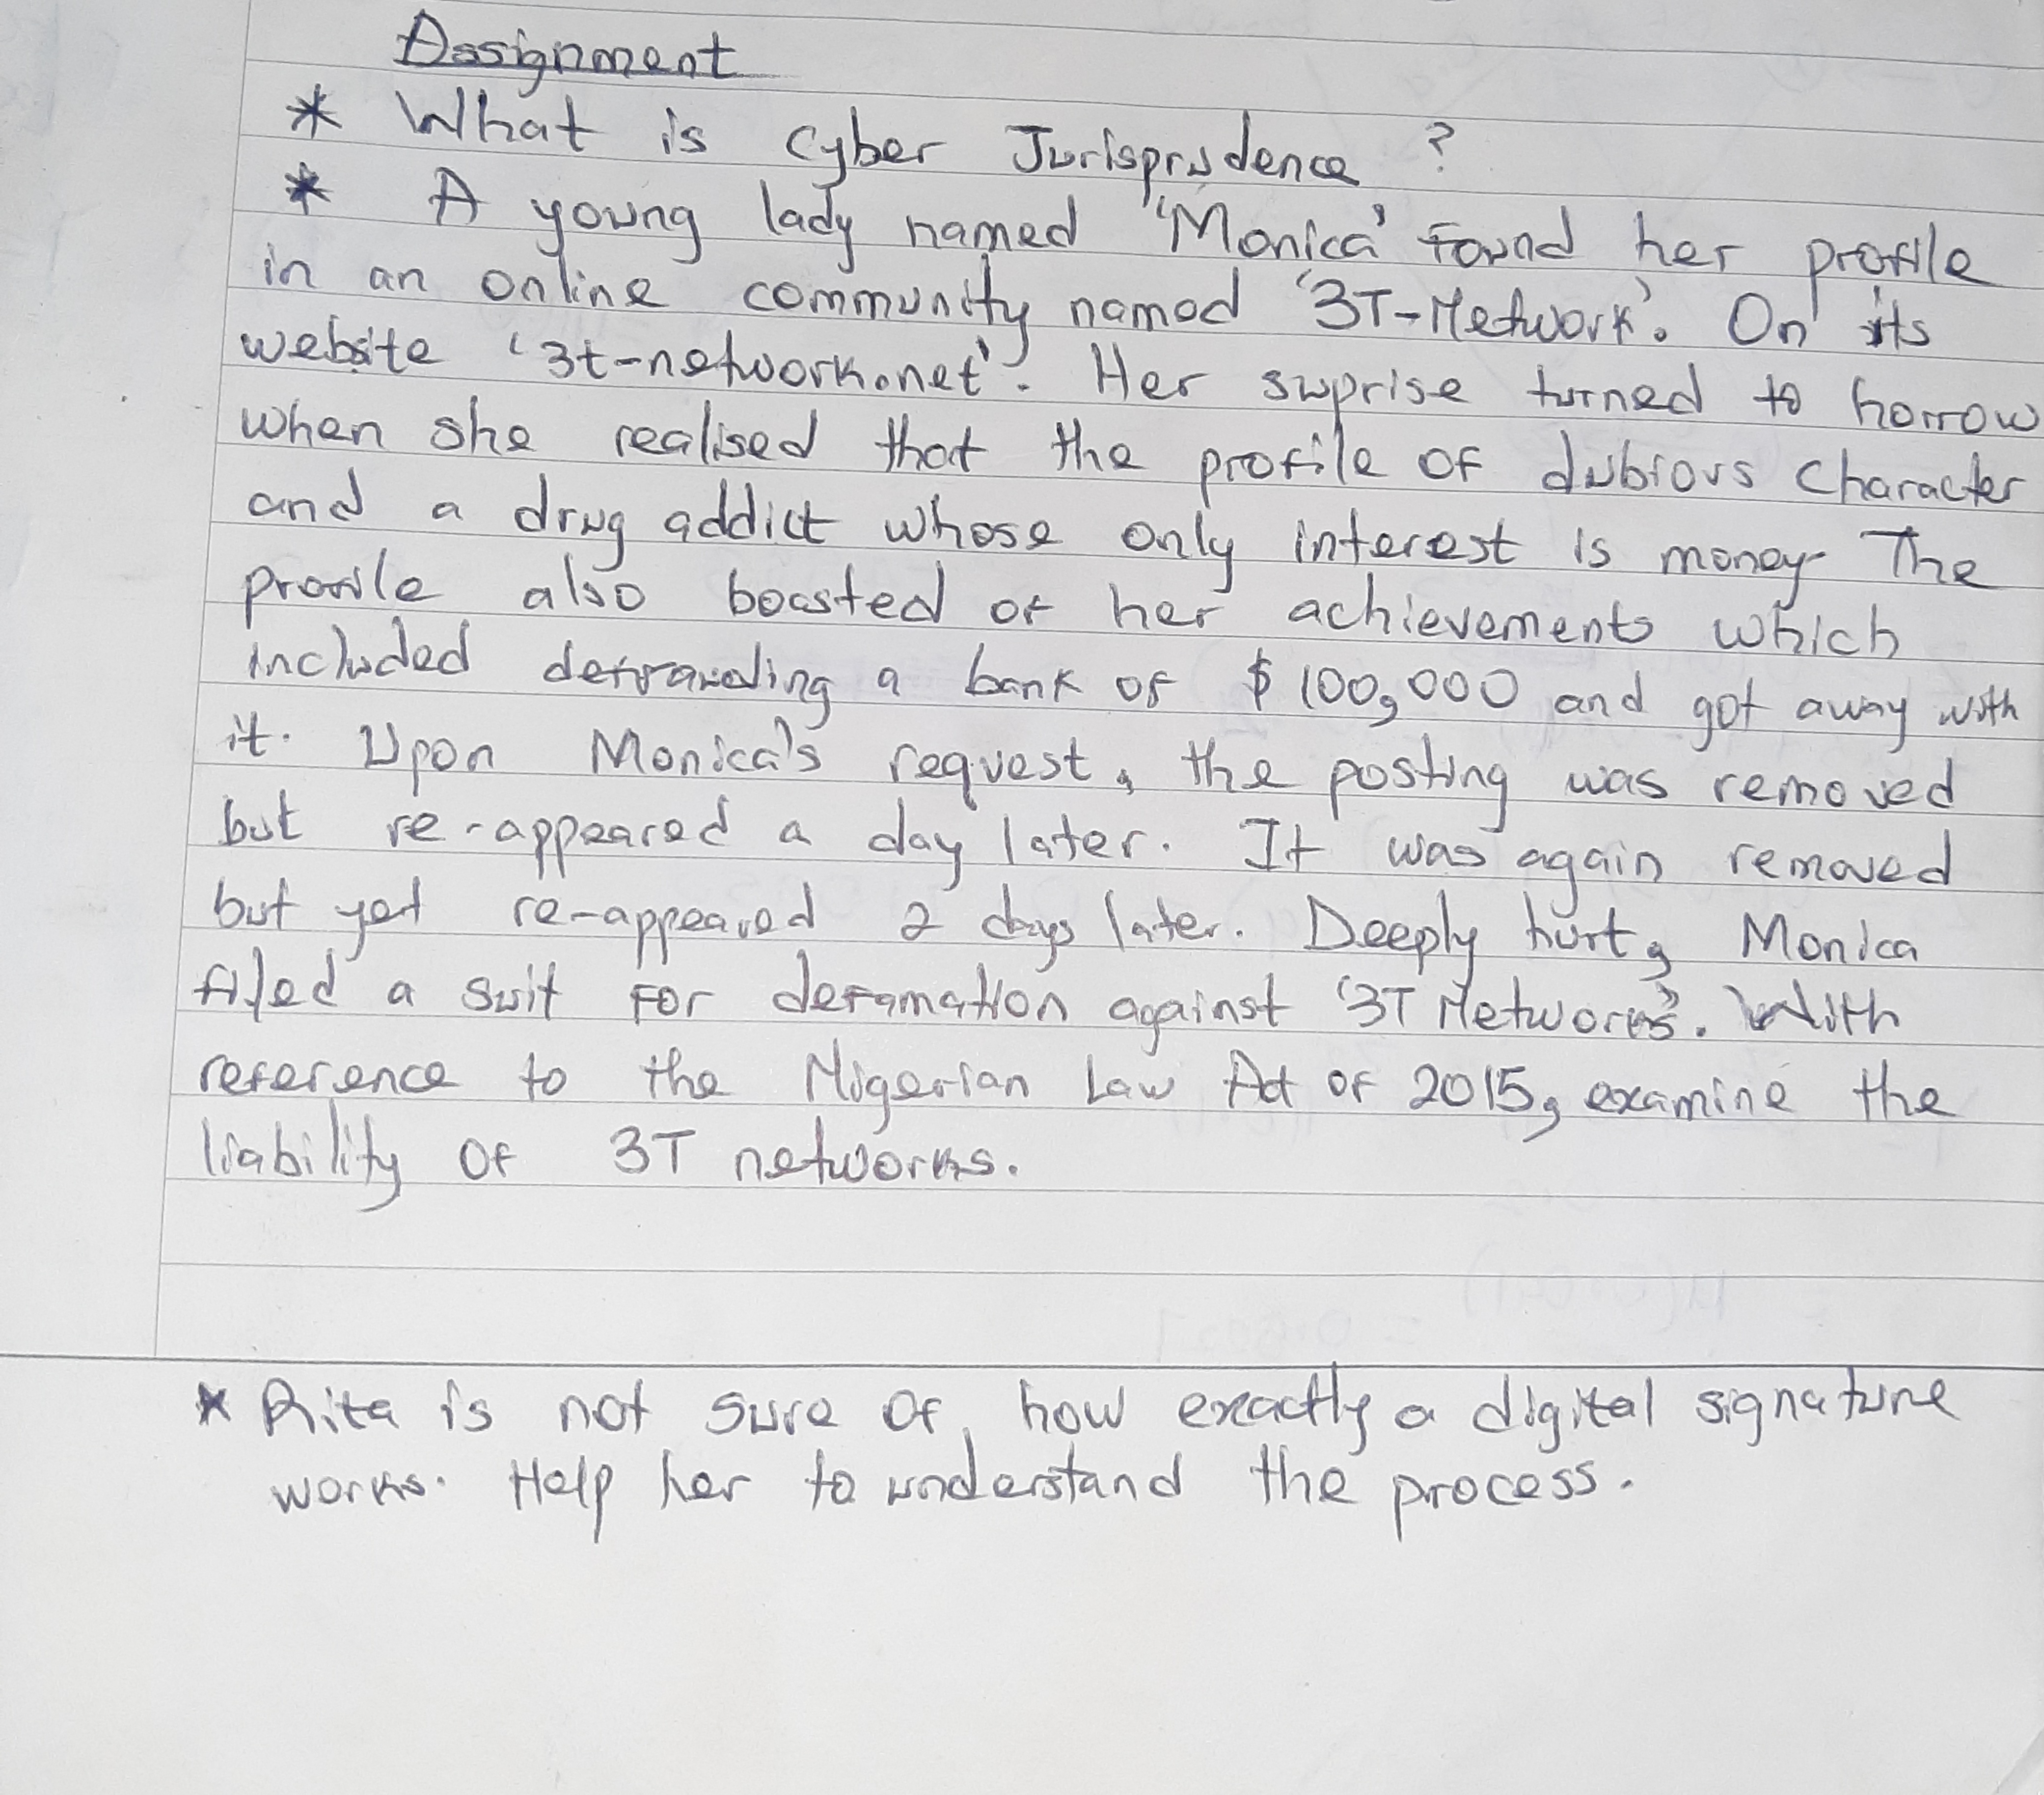 Assignment
* What is Cyber Jurisprudence ?
* A young lady named "Monica' found her profile
in an online community named '3T-Network'. On its
website '3t-network.net'. Her suprise turned to horrow
when she realised that the profile of dubious character
and a drug addict whose only interest is money. The
profile also boasted of her achievements which
included defrauding a bank of $100,000 and got away with
it. Upon Monica's request, the posting was removed
but re-appeared a day later. It was again removed
but yet re-appeared 2 days later. Deeply hurt, Monica
filed a suit for defamation against '3T Networks'. With
reference to the Nigerian Law Act of 2015, examine the
liability of 3T networks.
* Rita is not sure of how exactly a digital signature
works. Help her to understand the process.